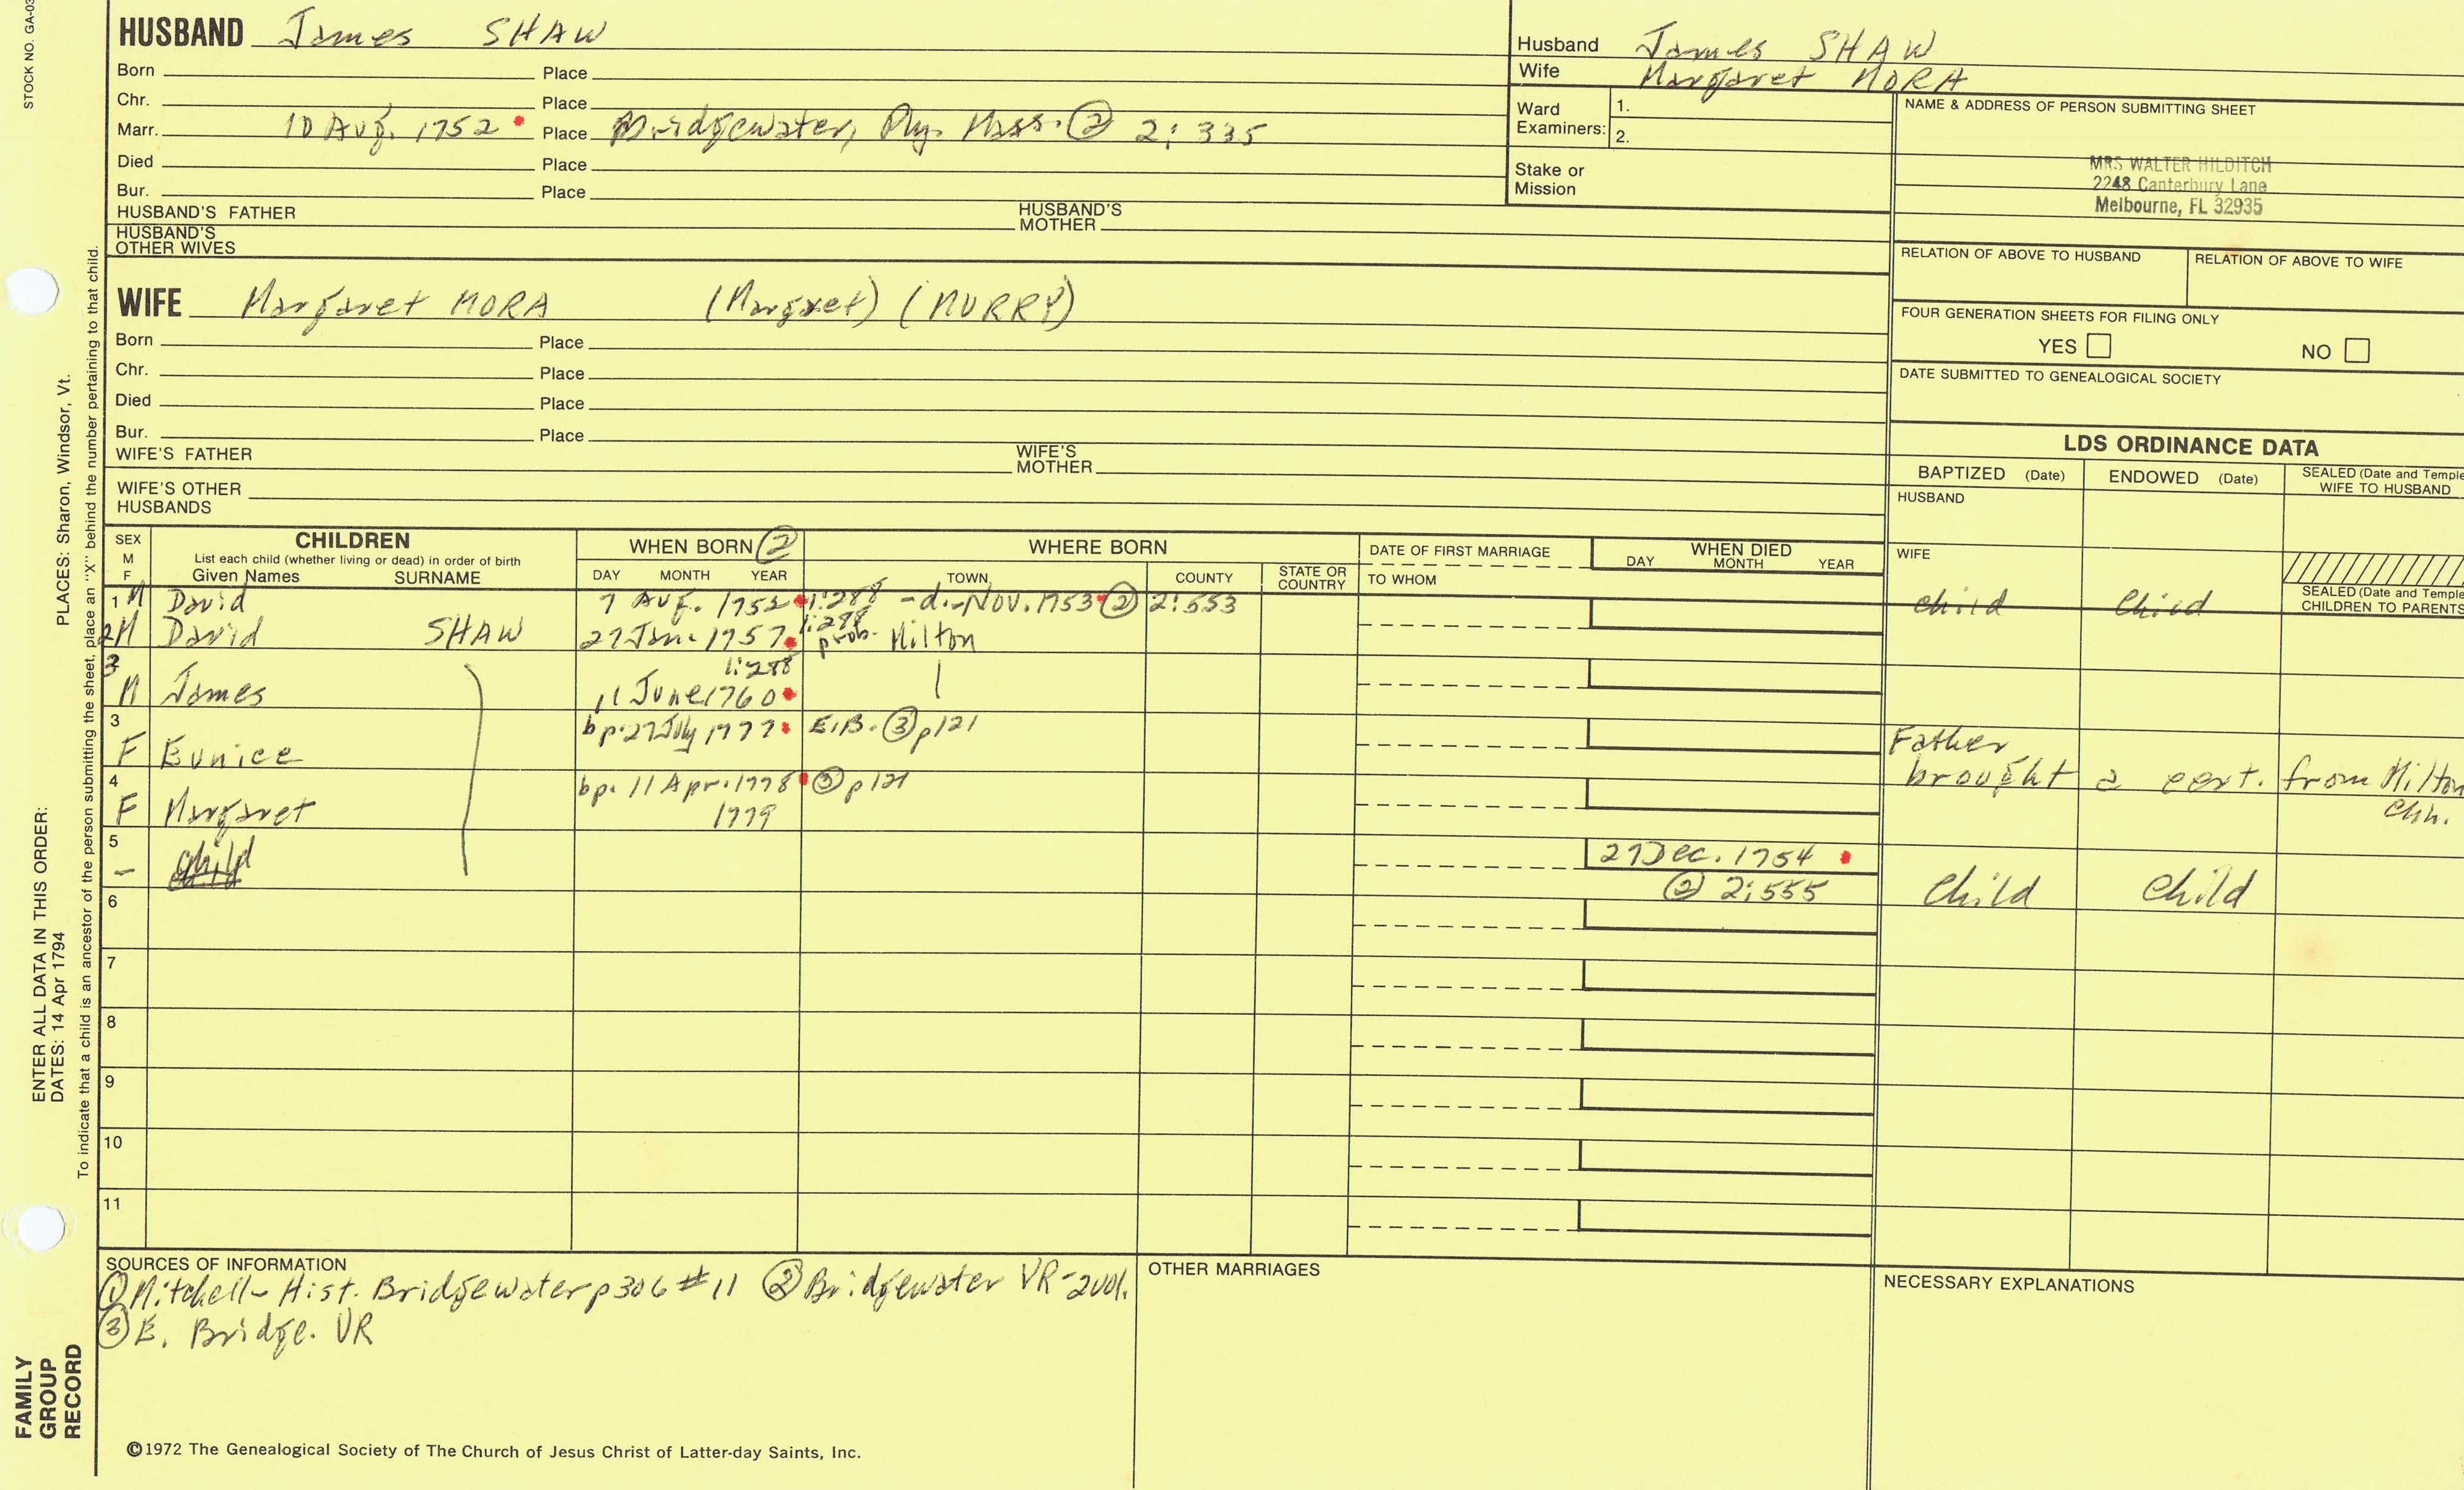 STOCK NO. GA-03
HUSBAND James SHAW
Born Place
Chr. Place
Marr. 10 Aug. 1752 Place Bridgewater, Ply. Mass. ② 2:335
Died Place
Bur. Place
HUSBAND'S FATHER HUSBAND'S MOTHER
HUSBAND'S OTHER WIVES
Husband James SHAW
Wife Margaret MORA
Ward Examiners: 1.
2.
Stake or Mission
NAME & ADDRESS OF PERSON SUBMITTING SHEET
MRS WALTER HILDITCH
2248 Canterbury Lane
Melbourne, FL 32935
RELATION OF ABOVE TO HUSBAND RELATION OF ABOVE TO WIFE
FOUR GENERATION SHEETS FOR FILING ONLY
YES NO
DATE SUBMITTED TO GENEALOGICAL SOCIETY
WIFE Margaret MORA (Margret) (MURRY)
Born Place
Chr. Place
Died Place
Bur. Place
WIFE'S FATHER WIFE'S MOTHER
WIFE'S OTHER HUSBANDS
LDS ORDINANCE DATA
BAPTIZED (Date) ENDOWED (Date) SEALED (Date and Temple
WIFE TO HUSBAND
HUSBAND
WIFE
SEALED (Date and Temple
CHILDREN TO PARENTS
SEX
M
F
CHILDREN
List each child (whether living or dead) in order of birth
Given Names SURNAME
WHEN BORN ②
DAY MONTH YEAR
WHERE BORN
TOWN COUNTY STATE OR COUNTRY
DATE OF FIRST MARRIAGE
TO WHOM
WHEN DIED
DAY MONTH YEAR
1 M David 7 Aug. 1752 1:288 -d.-Nov. 1953 ② 2:553 child child
2 M David SHAW 27 Jan. 1757 1:288 prob. Milton
3 M James 1:288
11 June 1760
3 F Eunice bp. 27 July 1777 E.B. ③ p121 Father
brought a cert. from Milton
Chh.
4 F Margaret bp. 11 Apr. 1778 ③ p121
1779
5 - Child 27 Dec. 1754
② 2:555 Child Child
6
7
8
9
10
11
SOURCES OF INFORMATION
① Mitchell- Hist. Bridgewater p306 #11 ② Bridgewater VR-2vol.
③ E. Bridge. VR
OTHER MARRIAGES
NECESSARY EXPLANATIONS
©1972 The Genealogical Society of The Church of Jesus Christ of Latter-day Saints, Inc.
ENTER ALL DATA IN THIS ORDER:
DATES: 14 Apr 1794
PLACES: Sharon, Windsor, Vt.
To indicate that a child is an ancestor of the person submitting the sheet, place an "X" behind the number pertaining to that child.
FAMILY
GROUP
RECORD